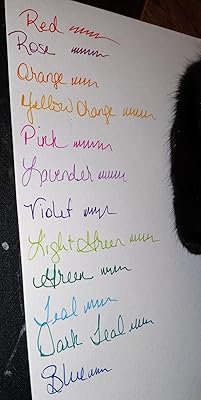 Red
Rose
Orange
Yellow Orange
Pink
Lavender
Violet
Light Green
Green
Teal
Dark Teal
Blue